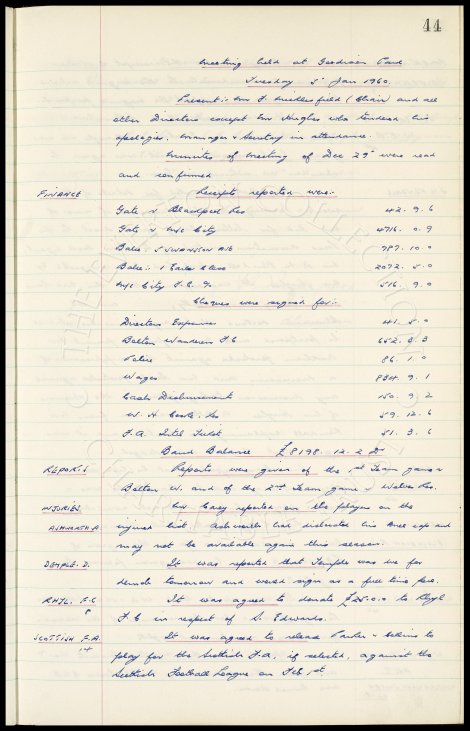 44
Meeting held at Goodison Park
Tuesday 5th Jan 1960.
Present:- Mr F. Micklesfield (Chair) and all
other Directors except Mr Hughes who tendered his
apologies. Manager & Secretary in attendance.
Minutes of Meeting of Dec 29th were read
and confirmed
FINANCE Receipts reported were:-
Gate v Blackpool Res 42. 9. 6
Gate v M/c City 4716. 0. 9
Bale: S SWANSON A/C 787. 10. 0
Bale:- 1 Earle 2072. 5. 0
M/c City F.C. % 516. 9. 0
Cheques were signed for:-
Directors Expenses 41. 5. 0
Bolton Wanderers F.C 652. 8. 3
Police 86. 1. 0
Wages 884. 9. 1
Cash Disbursement 150. 9. 2
W. H. 59. 12. 6
F.A. Intel Ticket 51. 3. 6
Bank Balance £8198. 12. 2 Dr
REPORTS Reports were given of the 1st Team game v
Bolton W. and of the 2nd Team game v Wolves Res.
INJURIES Mr Carey reported on the players on the
ASHWORTH A. injured list. Ashworth had dislocated his knee cap and
may not be available again this season.
TEMPLE. D. It was reported that Temple was due for
demob tomorrow and would sign as a full time pro.
RHYL. F.C It was agreed to donate £25.0.0 to Rhyl
F.C in respect of S. Edwards.
SCOTTISH F.A. It was agreed to release Parker & Collins to
14
play for the Scottish F.A., if selected, against the
Scottish Football League on Feb 1st.